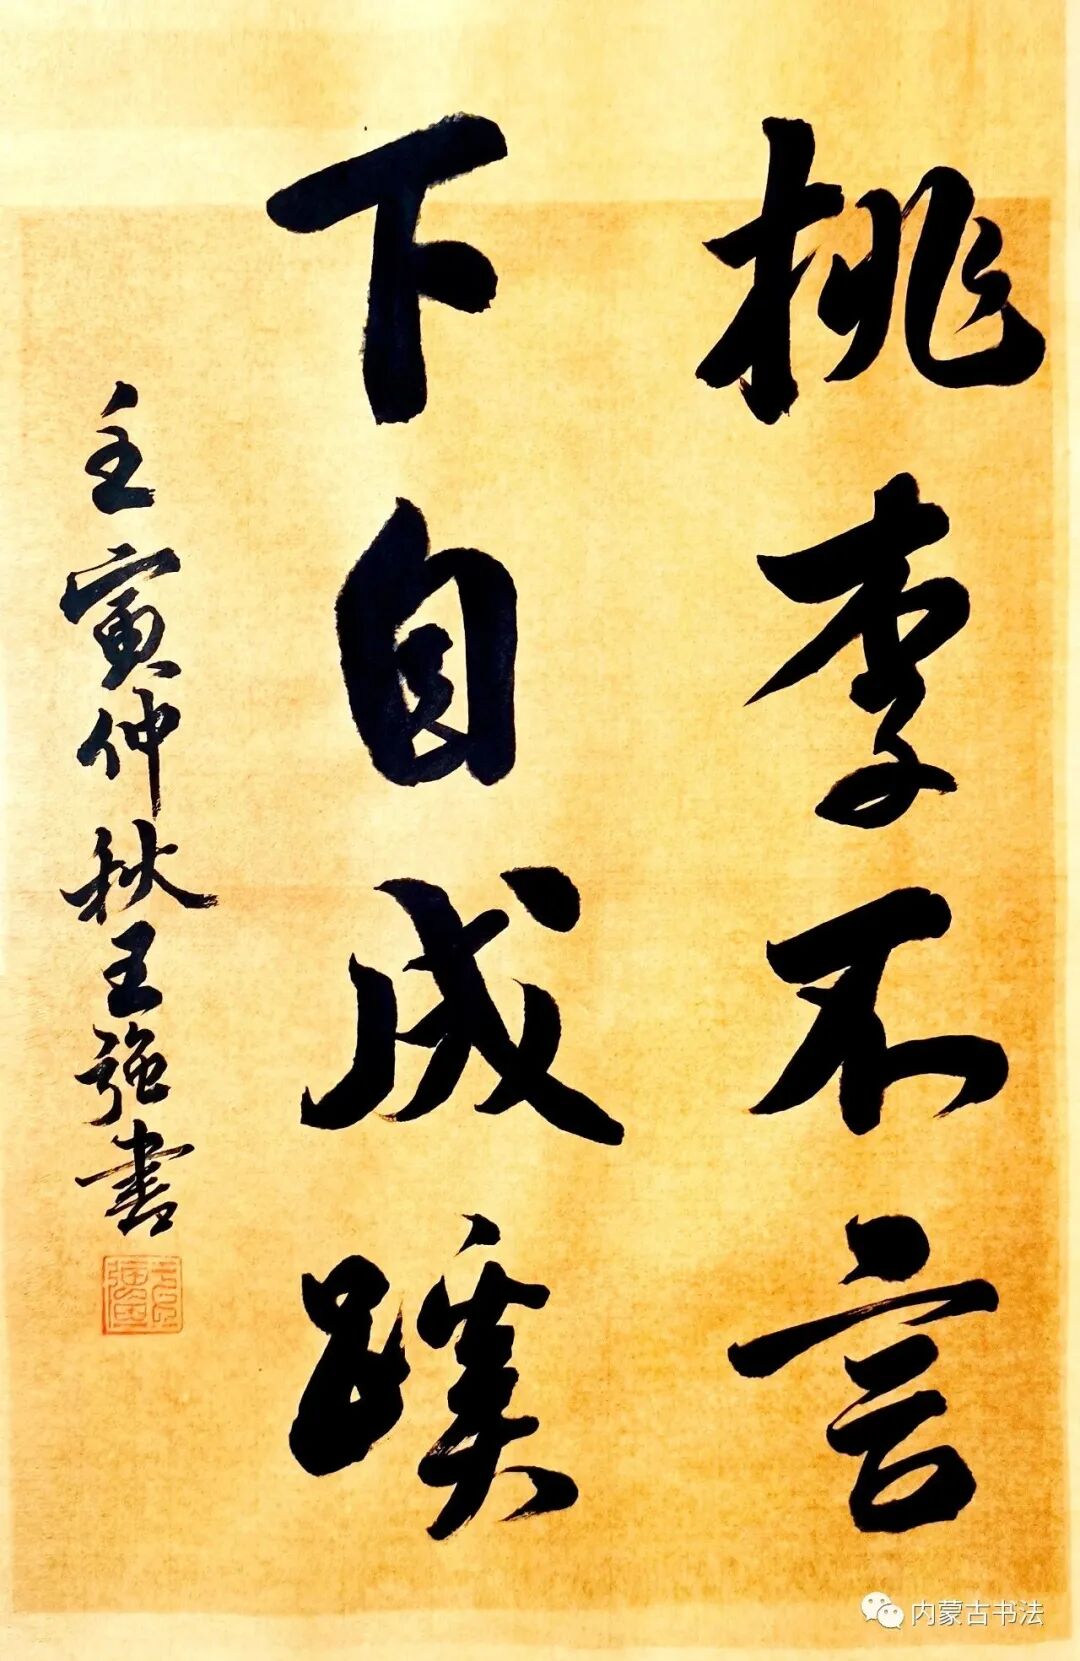 桃李不言
下自成蹊
壬寅仲秋王强書
内蒙古书法